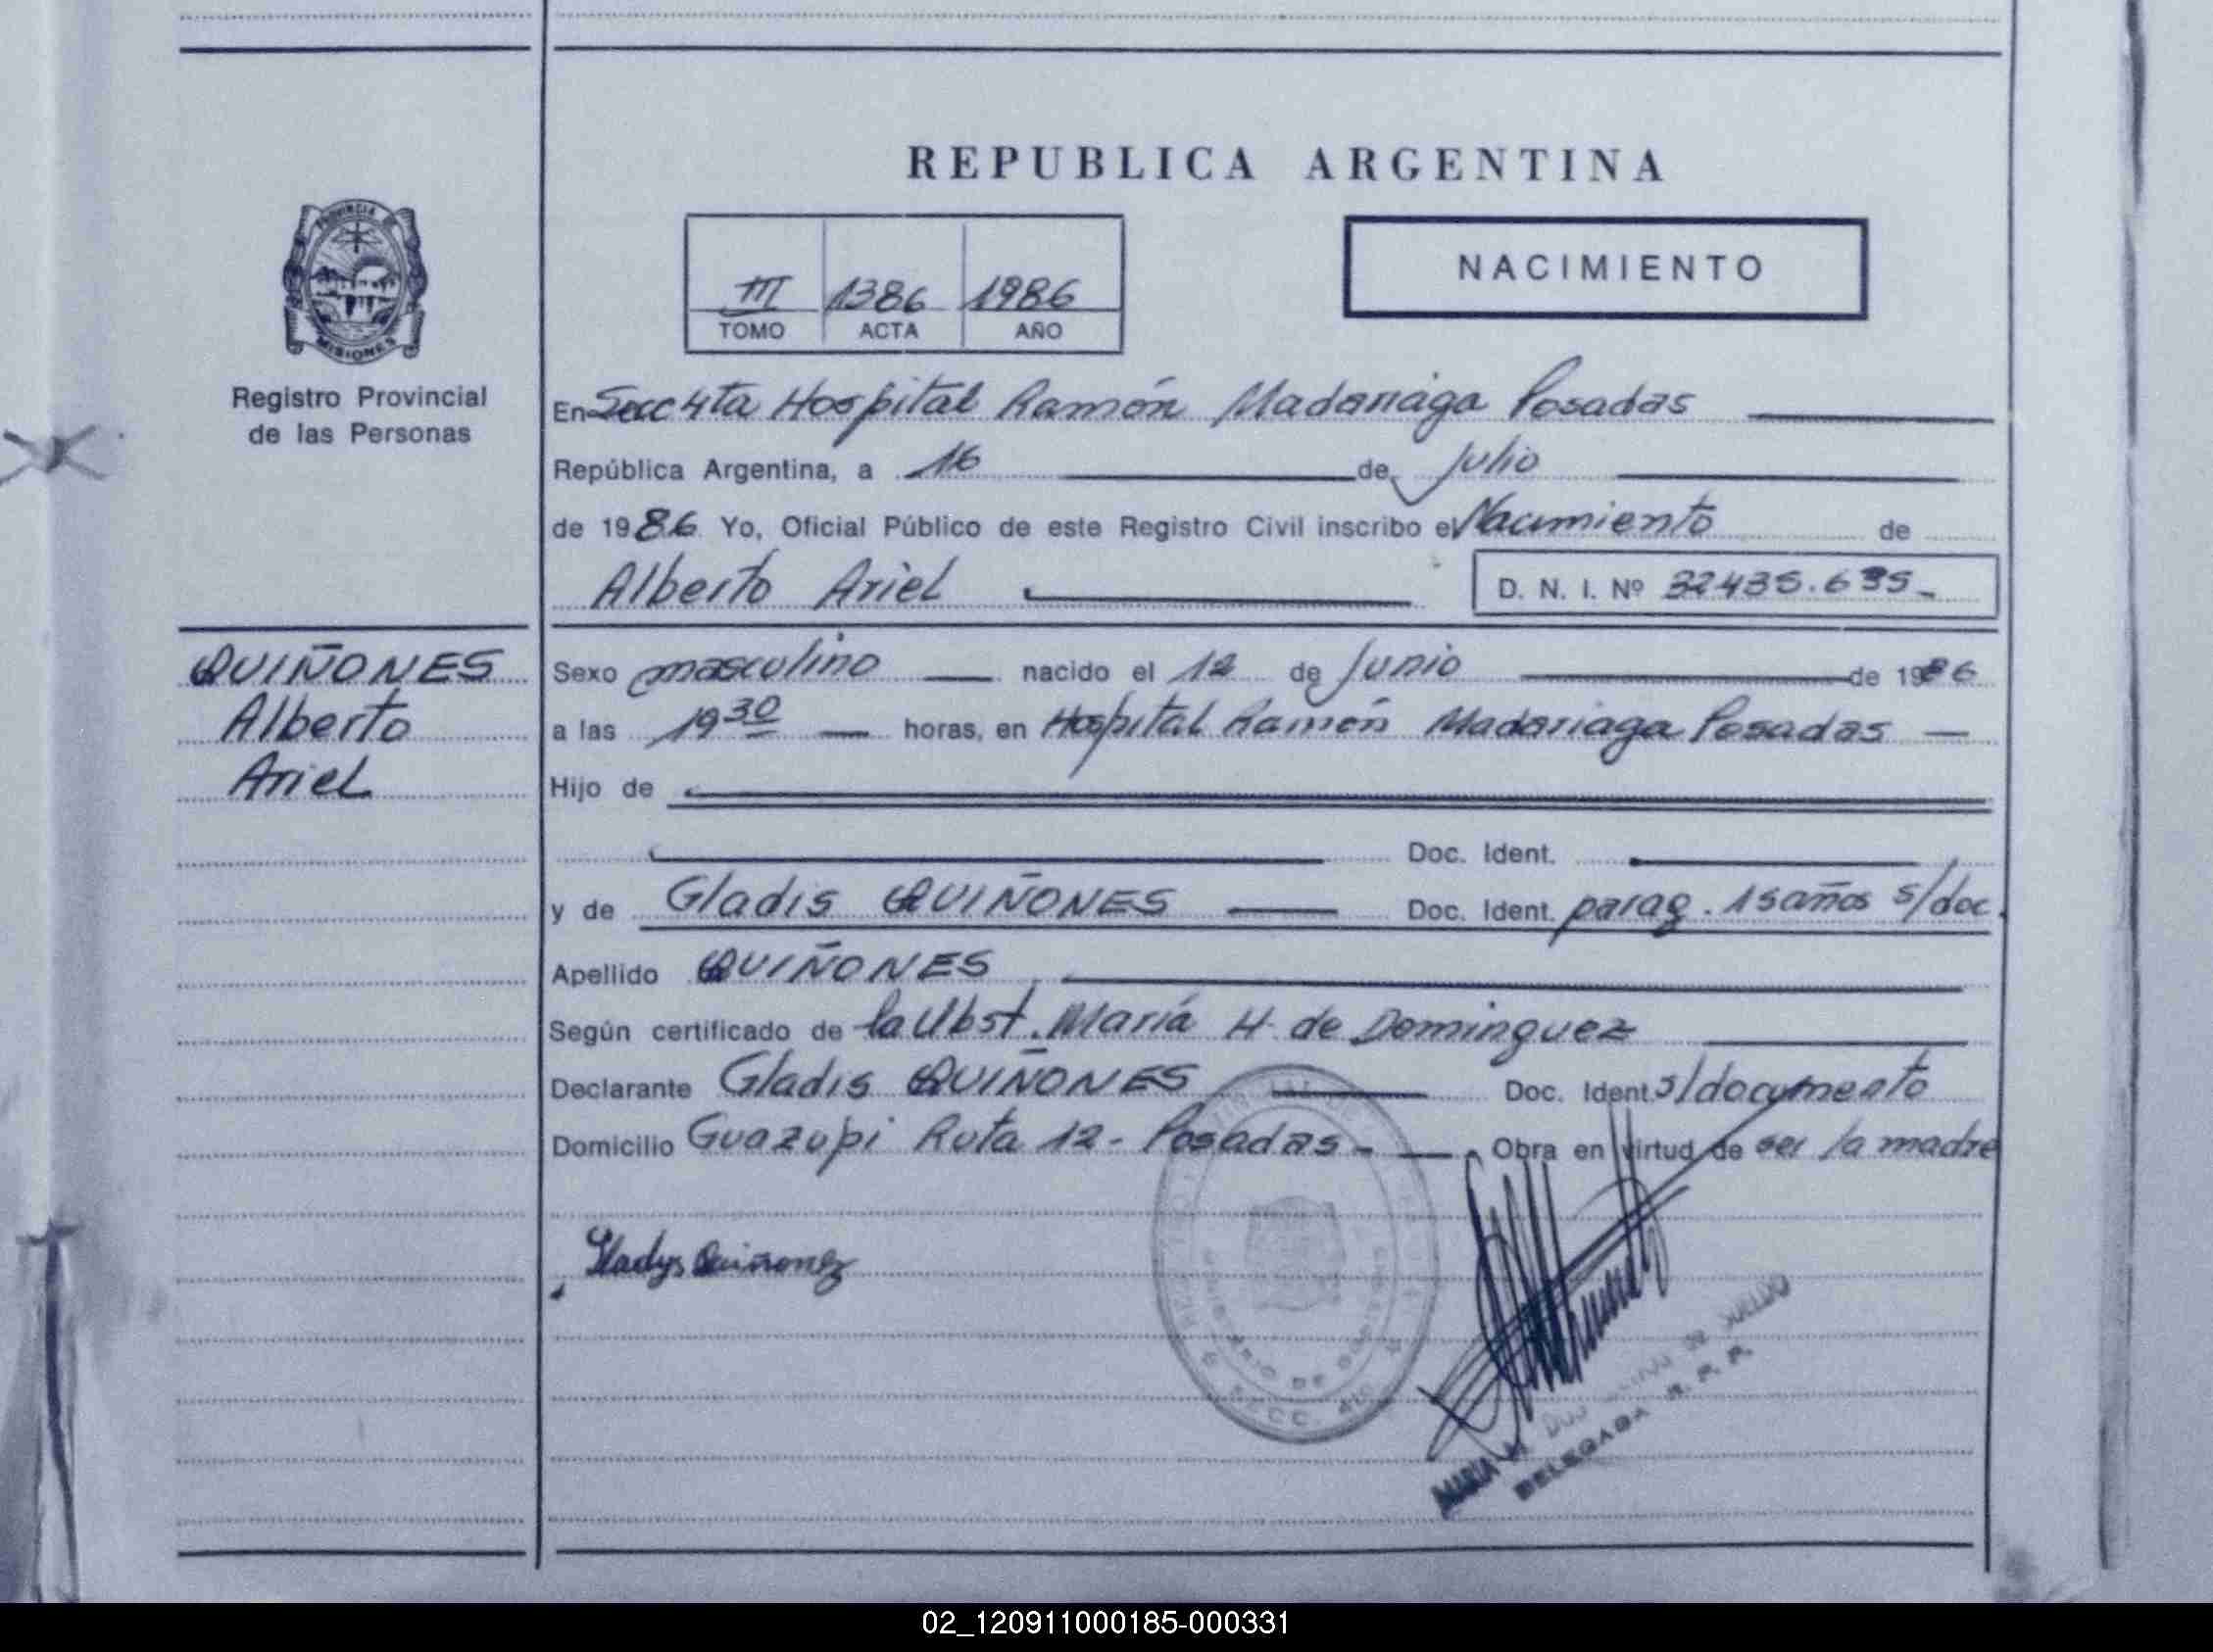 REPUBLICA ARGENTINA
PROVINCIA DE
MISIONES
Registro Provincial
de las Personas
III 1386 1986
TOMO ACTA AÑO
NACIMIENTO
En Secc 4ta Hospital Ramón Madariaga Posadas
República Argentina, a 16 de Julio
de 1986 Yo, Oficial Público de este Registro Civil inscribo el Nacimiento de
Alberto Ariel
D. N. I. Nº 32435.635-
QUIÑONES
Alberto
Ariel
Sexo masculino nacido el 12 de Junio de 1986
a las 19 30 horas, en Hospital Ramón Madariaga Posadas
Hijo de
Doc. Ident.
y de Gladis QUIÑONES Doc. Ident. parag. 15 años s/doc.
Apellido QUIÑONES
Según certificado de la Obst. María H. de Dominguez
Declarante Gladis QUIÑONES Doc. Ident s/documento
Domicilio Guazupi Ruta 12 - Posadas - Obra en virtud de ser la madre
Gladys Quiñonez
MARIA
DELEGADA R. P. P.
02_120911000185-000331